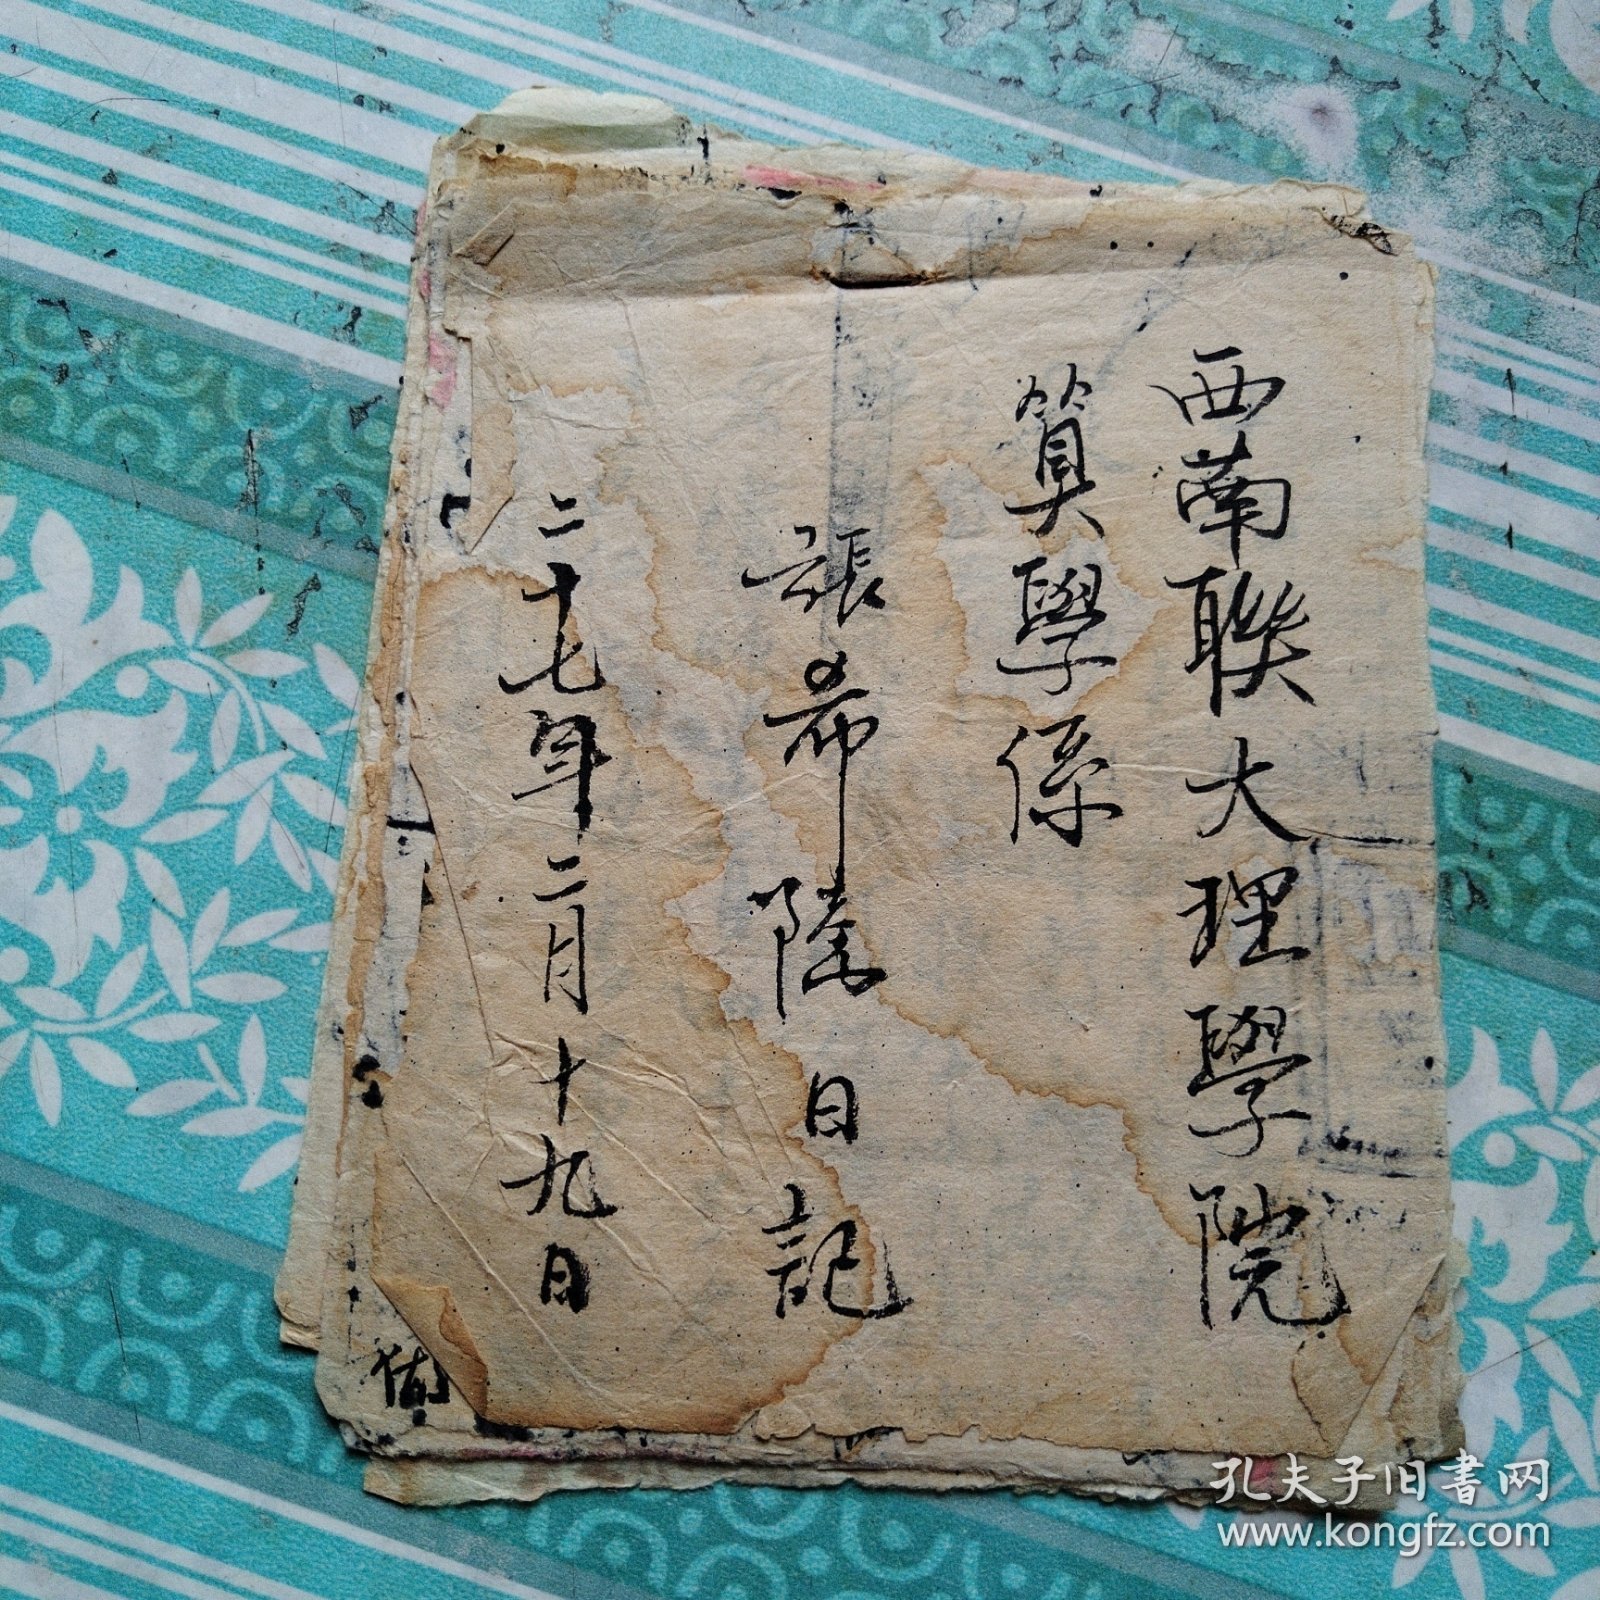 西南聯大理學院
算學係
張希陸日記
二十七年二月十九日
孔夫子旧书网
www.kongfz.com